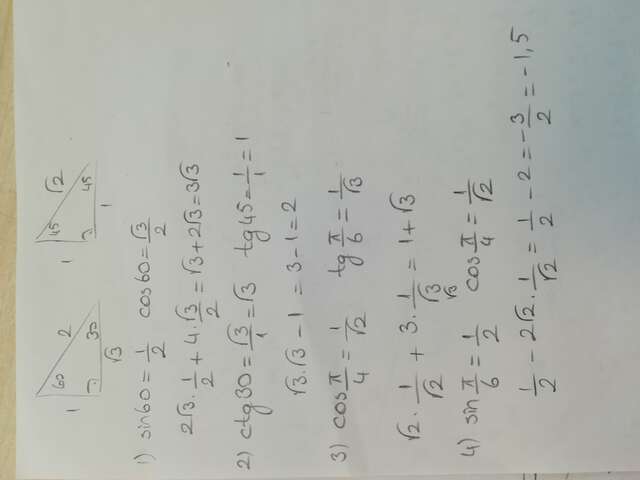 1 60 2 30 √3 1 45 √2 45 1
1) sin60 = 1/2 cos60 = √3/2
2√3 · 1/2 + 4 · √3/2 = √3 + 2√3 = 3√3
2) ctg30 = √3/1 = √3 tg45 = 1/1 = 1
√3 · √3 - 1 = 3 - 1 = 2
3) cos π/4 = 1/√2 tg π/6 = 1/√3
√2 · 1/√2 + 3 · 1/√3 √3 = 1 + √3
4) sin π/6 = 1/2 cos π/4 = 1/√2
1/2 - 2√2 · 1/√2 = 1/2 - 2 = -3/2 = -1,5